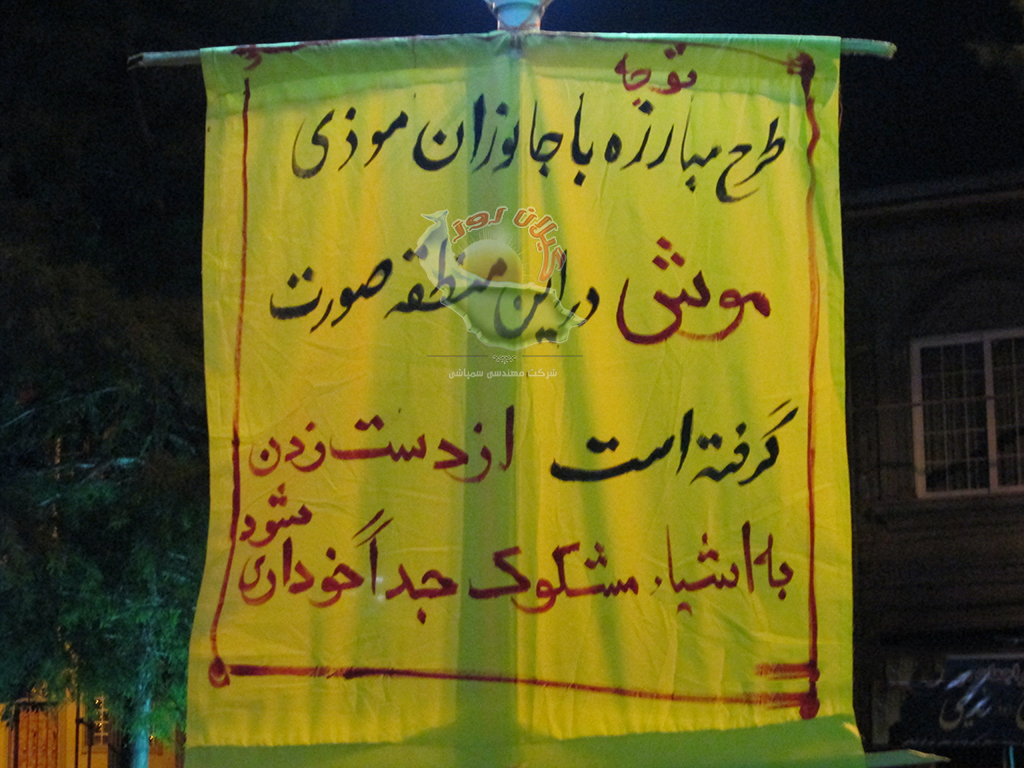 توجه
طرح مبارزه با جانوران موذی
موش در این منطقه صورت
گرفته است از دست زدن
به اشیاء مشکوک جداً خوداری
شود
گیلان روز
شرکت مهندسی سمپاشی